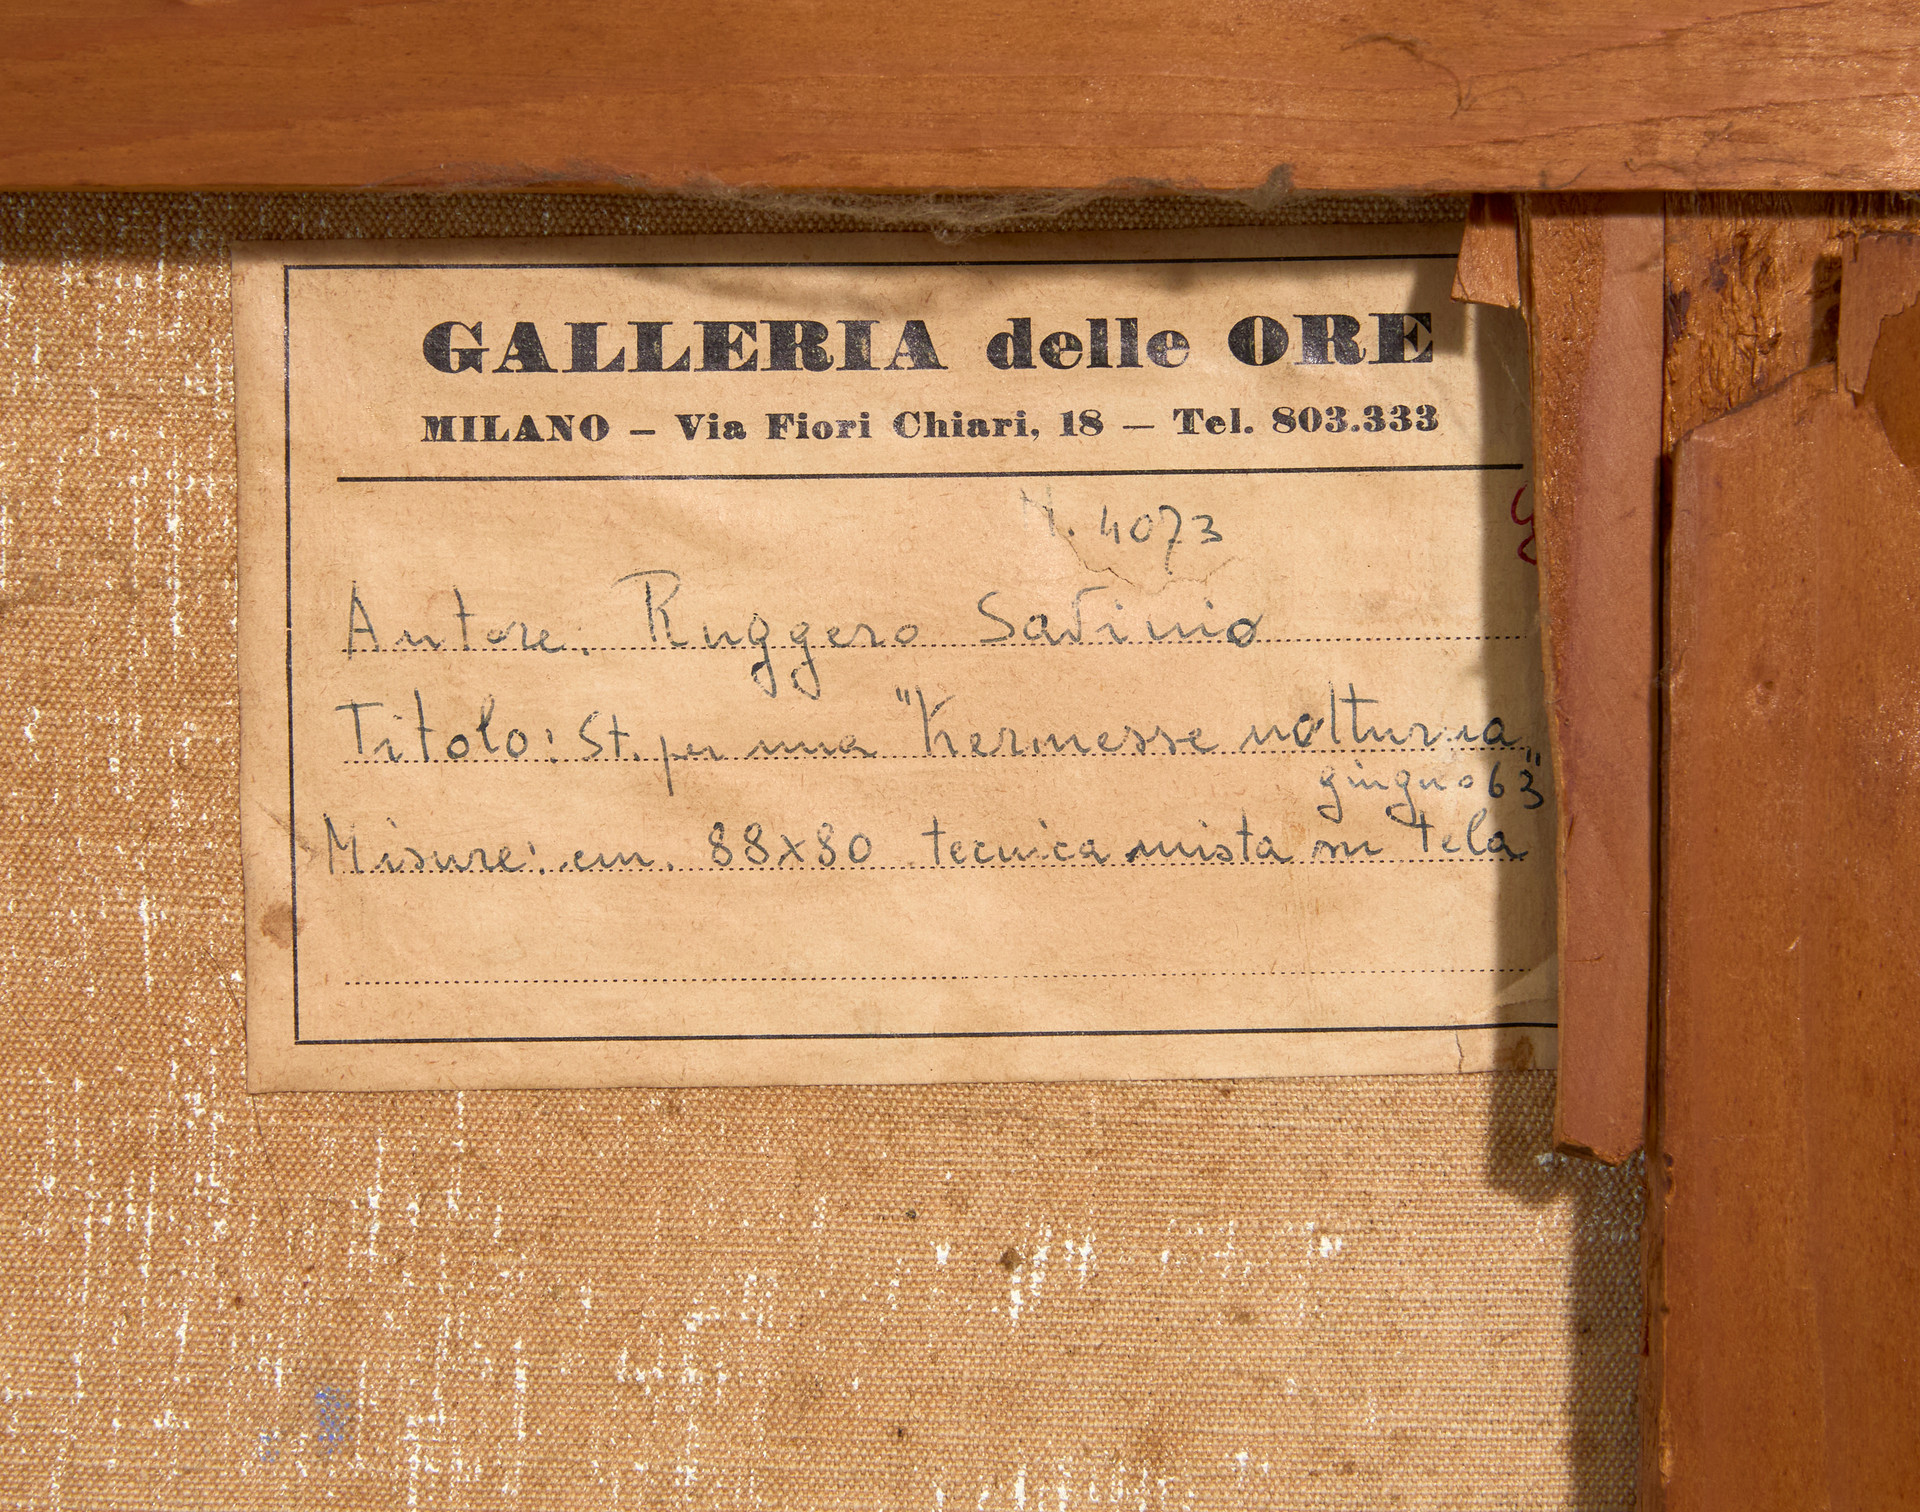 GALLERIA delle ORE
MILANO – Via Fiori Chiari, 18 – Tel. 803.333
N. 4073
Autore. Ruggero Savinio
Titolo: St. per una "Kermesse notturna"
giugno 63
Misure: cm. 88x80 tecnica mista su tela